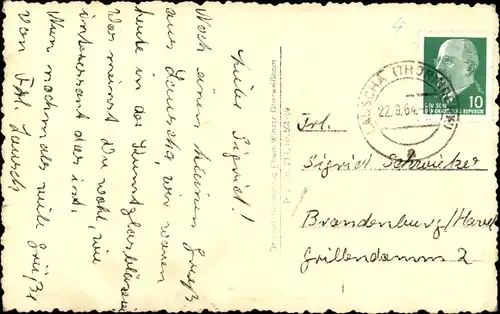 Liebe Sigrid!
Noch einen kleinen Gruß
aus Lauscha, wir waren
heute in der Kunstglasbläserei
Was meinst Du wohl, wie
interessant das ist.
Nun nochmals viele Grüße
von Frl.
4
LAUSCHA (THÜR
22.8.64
a
10
DEUTSCHE
DEMOKRATISCHE REPUBLIK
Frl.
Sigrid
Brandenburg/Havel
Grillendamm 2